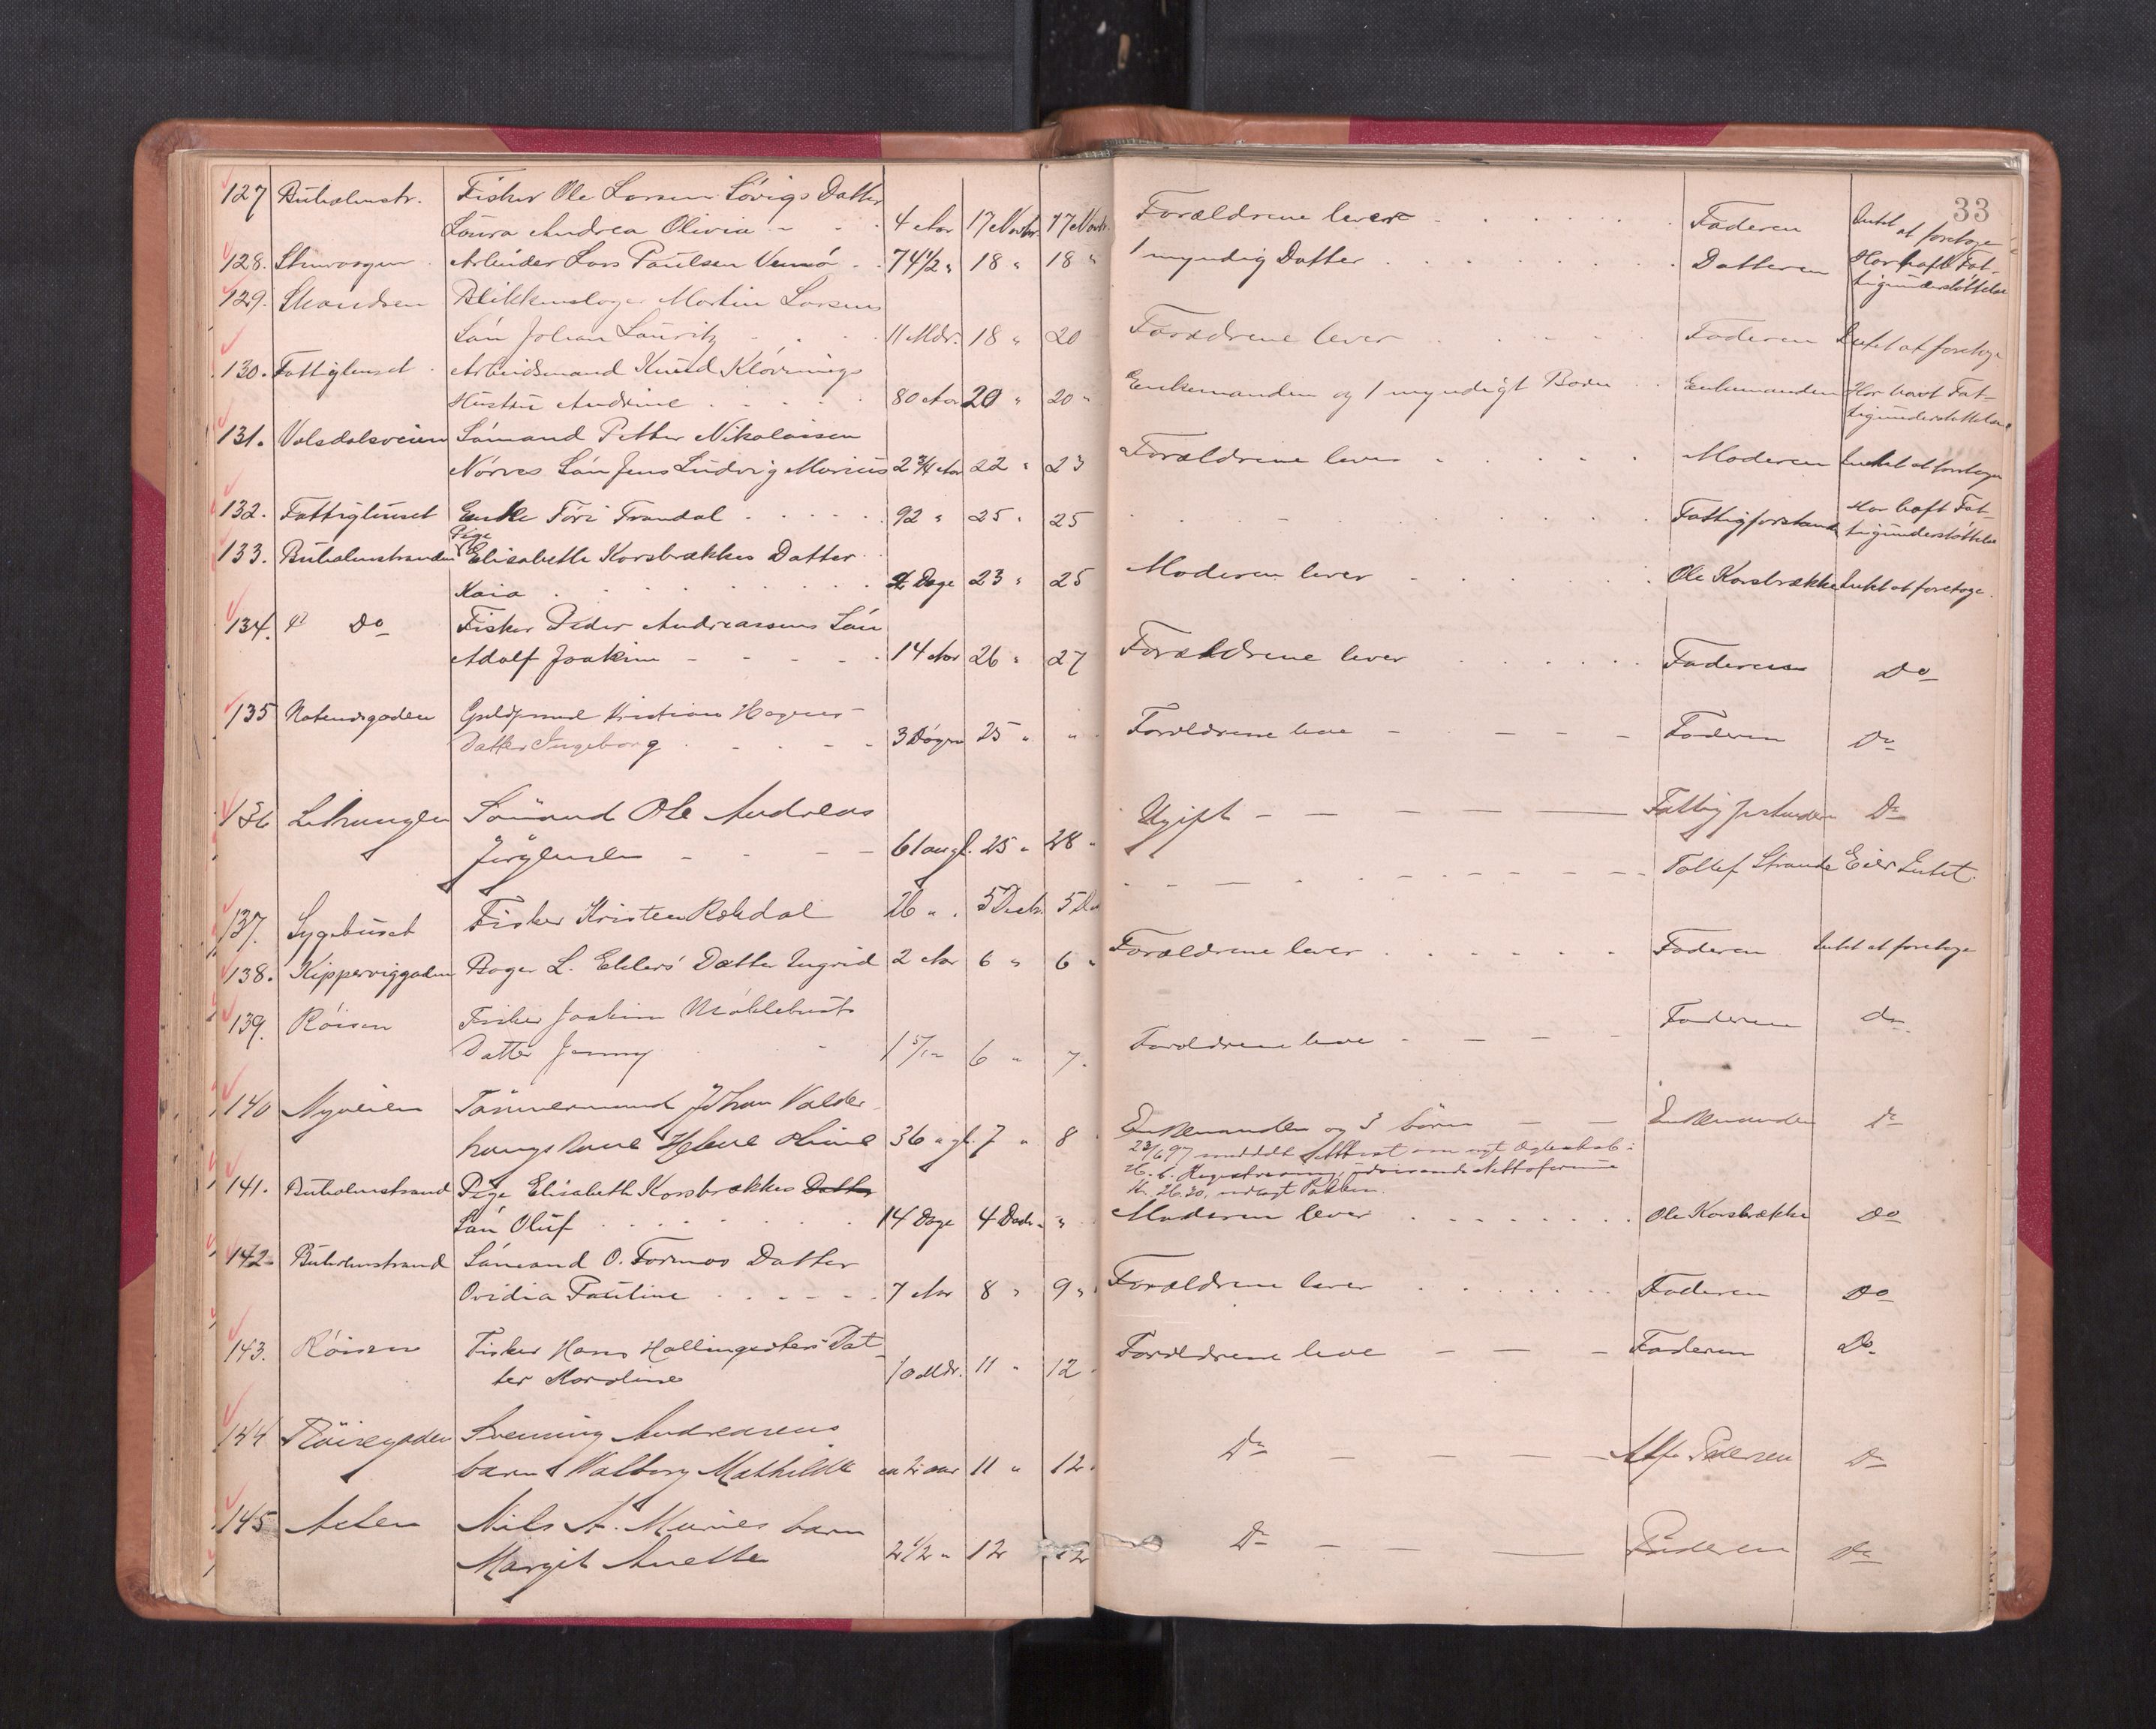 33
127 Buholmstr. Fisker Ole Larsen Løvigs Datter
Laura Andrea Olivia - - - 4 Aar 17 Novbr. 17 Novbr. Forældrene lever - - - Faderen Intet at foretage
128. Arbeider Lars Paulsen Vemø - 74 1/2 " 18 " 18 " 1 myndig Datter - - - Datteren Har haft Fat-
tigunderstøttelse
129. Skandsen Blikkenslager Martin Larsens
Søn Johan Lauritz - - - 11 Mdr. 18 " 20 Forældrene lever - - - Faderen Intet at foretage
130. Fattighuset Arbeidsmand Knud Kløvnings
Hustru Andrine - - - 80 Aar 20 " 20 " Enkemanden og 1 myndigt Barn Enkemanden Har havt Fat-
tigunderstøttelse
131. Volsdalsveien Sømand Petter Nikolaisen
Nørves Søn Jens Ludvig Marius 2 3/4 Aar 22 " 23 Forældrene lever - - - Moderen Intet at foretage
132. Fattighuset Enke Turi Trandal - - - 92 " 25 " 25 - - - Fattigforstand. Har haft Fat-
tigunderstøttelse
Pige
133. Buholmstranden Elisabeth Korsbrækkes Datter
Kaia - - - 2 Dage 23 " 25 Moderen lever - - - Ole Korsbrække Intet at foretage.
134. Do Fisker Peder Andreassens Søn
Adolf Joakim - - - 14 Aar 26 " 27 Forældrene lever - - - Faderen Do
135 Notenesgaden Guldsmed Kristian Hagens
Datter Ingeborg - - - 3 Døgn 25 " " Forældrene leve - - - Faderen Do
136 Sømand Ole Andreas
Jörgensen - - - 61 aar gl. 25 " 28 " Ugift - - - Fattigforstanderen Do
137. Sygehuset Fisker Kristen Rekdal 26 " 5 Decbr. 5 Dec - - - Tollef Strande Eier Intet.
138. Kipperviggaden Bager L. Ehlers' Datter Ingrid 2 Aar 6 " 6 " Forældrene lever - - - Faderen Intet at foretage
139. Röisen Fisker Joakim Møklebusts
Datter Jenny - 1 5/12 6 " 7. Forældrene leve - - - Faderen do
140 Nyveien Tömmermand Johan Valder-
haugs Kone Helene Oline 36 " gl. 7 " 8 Enkemanden og 3 börn - - Enkemanden Do
23/6 97 meddelt Attest om nyt Ægteskab:
Registrering, udvisende Nettoformue
Kr. 26.20, udlagt Pakken.
141. Buholmstrand Pige Elisabeth Korsbrækkes Datter
Søn Oluf - - - 14 Dage 4 Decbr. " Moderen lever - - - Ole Korsbrække Do
142 Buholmstrand Sømand O. Formos Datter
Ovidia Pauline - - - 7 Aar 8 " 9 " Forældrene lever - - - Faderen Do
143. Röisen Fisker Hans Hellingsæters Dat-
ter Karoline 10 Mdr. 11 " 12 Forældrene leve - - - Faderen Do
144 Röisegaden Svenning Andreasens
barn Valborg Mathilde ca 2 aar 11 " 12 Do - - - Alfr. Pedersen Do
145 Aslen Nils A. barn
Margit Anette 2 1/2 " 12 12 Do - - - Faderen Do